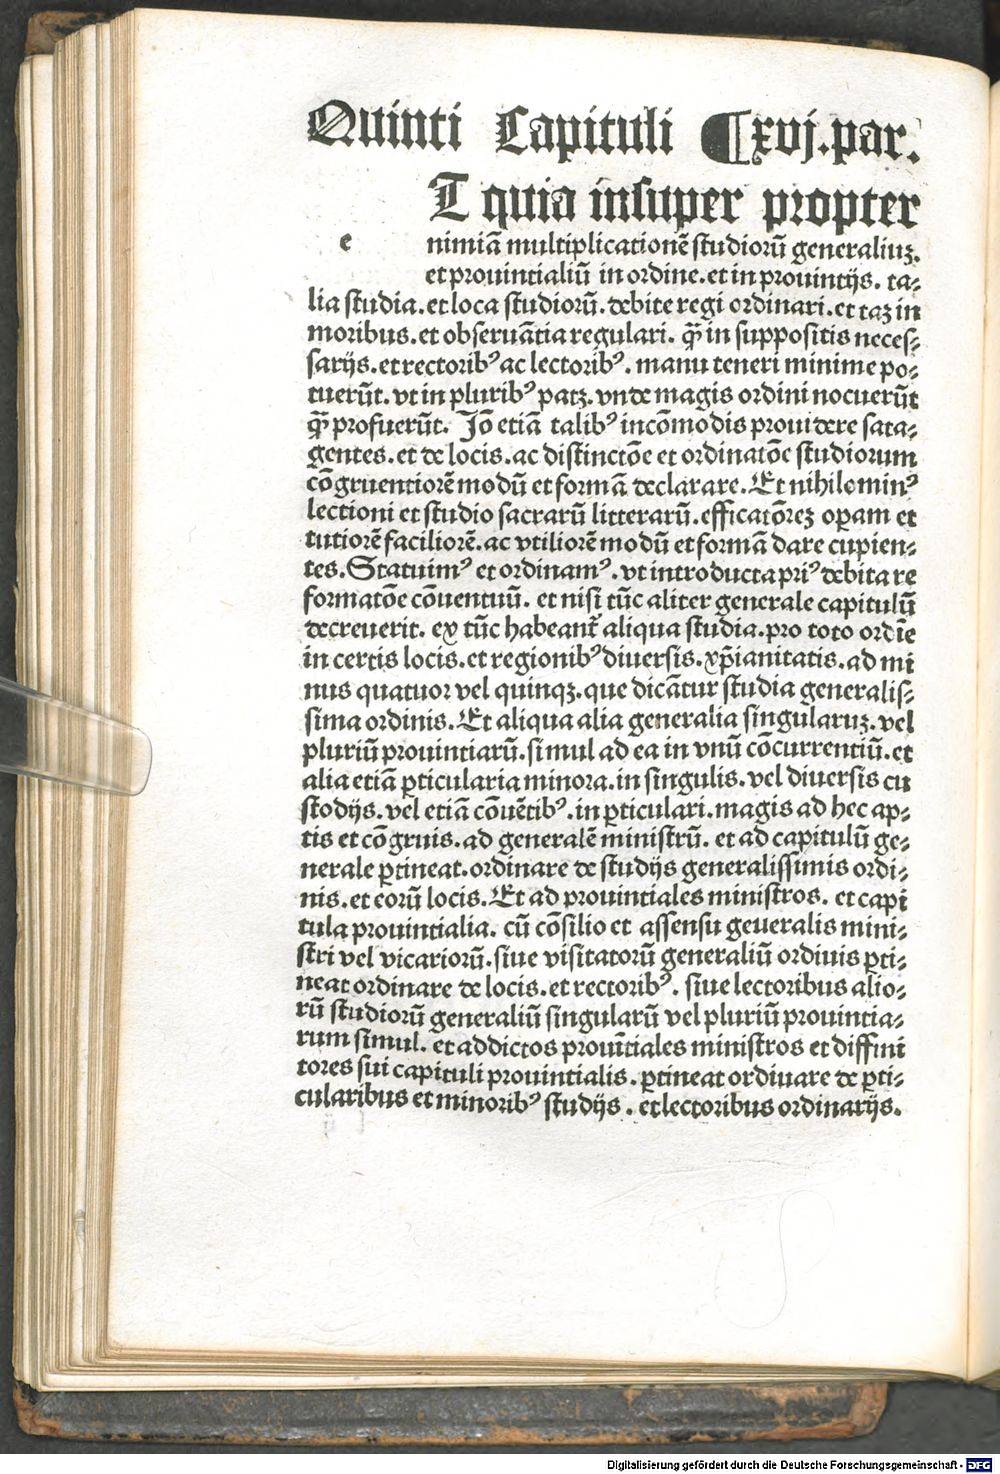 Quinti Capituli ¶xvj.par.
T quia insuper propter
e nimiā multiplicationē studiorū generaliuꝫ.
et prouintialiū in ordine.et in prouintijs. ta⸗
lia studia.et loca studiorū. debite regi ordinari.et taꝫ in
moribus.et obseruātia regulari. qꝫ̄ in suppositis neces⸗
sarijs.et rectoribꝰ ac lectoribꝰ. manu teneri minime po⸗
tuerūt. vt in pluribꝰ patꝫ. vnde magis ordini nocuerūt
qꝫ̄ profuerūt. Jō etiā talibꝰ incōmodis prouidere sata⸗
gentes.et de locis.ac distinctōe et ordinatōe studiorum
cōgruentiorē modū et formā declarare.Et nihilominꝰ
lectioni et studio sacrarū litterarū.efficatōreꝫ oꝑam et
tutiorē faciliorē.ac vtiliorē modū et formā dare cupien⸗
tes.Statuimꝰ et ordinamꝰ.vt introducta priꝰ debita re
formatōe cōuentuū. et nisi tūc aliter generale capitulū
decreuerit. ex tūc habeant᷑ aliqua studia.pro toto ordīe
in certis locis.et regionibꝰ diuersis.xp̄ianitatis.ad mi
nus quatuor vel quinqꝫ.que dicātur studia generalis⸗
sima ordinis.Et aliqua alia generalia singularuꝫ.vel
pluriū prouintiarū.simul ad ea in vnū cōcurrentiū.et
alia etiā ꝑticularia minora.in singulis.vel diuersis cu
stodijs.vel etiā cōuētibꝰ.in ꝑticulari.magis ad hec ap⸗
tis et cōgruis.ad generalē ministrū. et ad capitulū ge⸗
nerale ꝑtineat.ordinare de studijs generalissimis ordi⸗
nis.et eorū locis.Et ad prouintiales ministros. et capi
tula prouintialia. cū cōsilio et assensu geueralis mini⸗
stri vel vicariorū.siue visitatorū generaliū ordiuis ꝑti⸗
neat ordinare de locis.et rectoribꝰ. siue lectoribus alio⸗
rū studiorū generaliū singularū vel pluriū prouintia⸗
rum simul. et addictos prouītiales ministros et diffini
tores sui capituli prouintialis.ꝑtineat ordiuare de ꝑti⸗
cularibus et minoribꝰ studijs . et lectoribus ordinarijs.
Digitalisierung gefördert durch die Deutsche Forschungsgemeinschaft - DFG